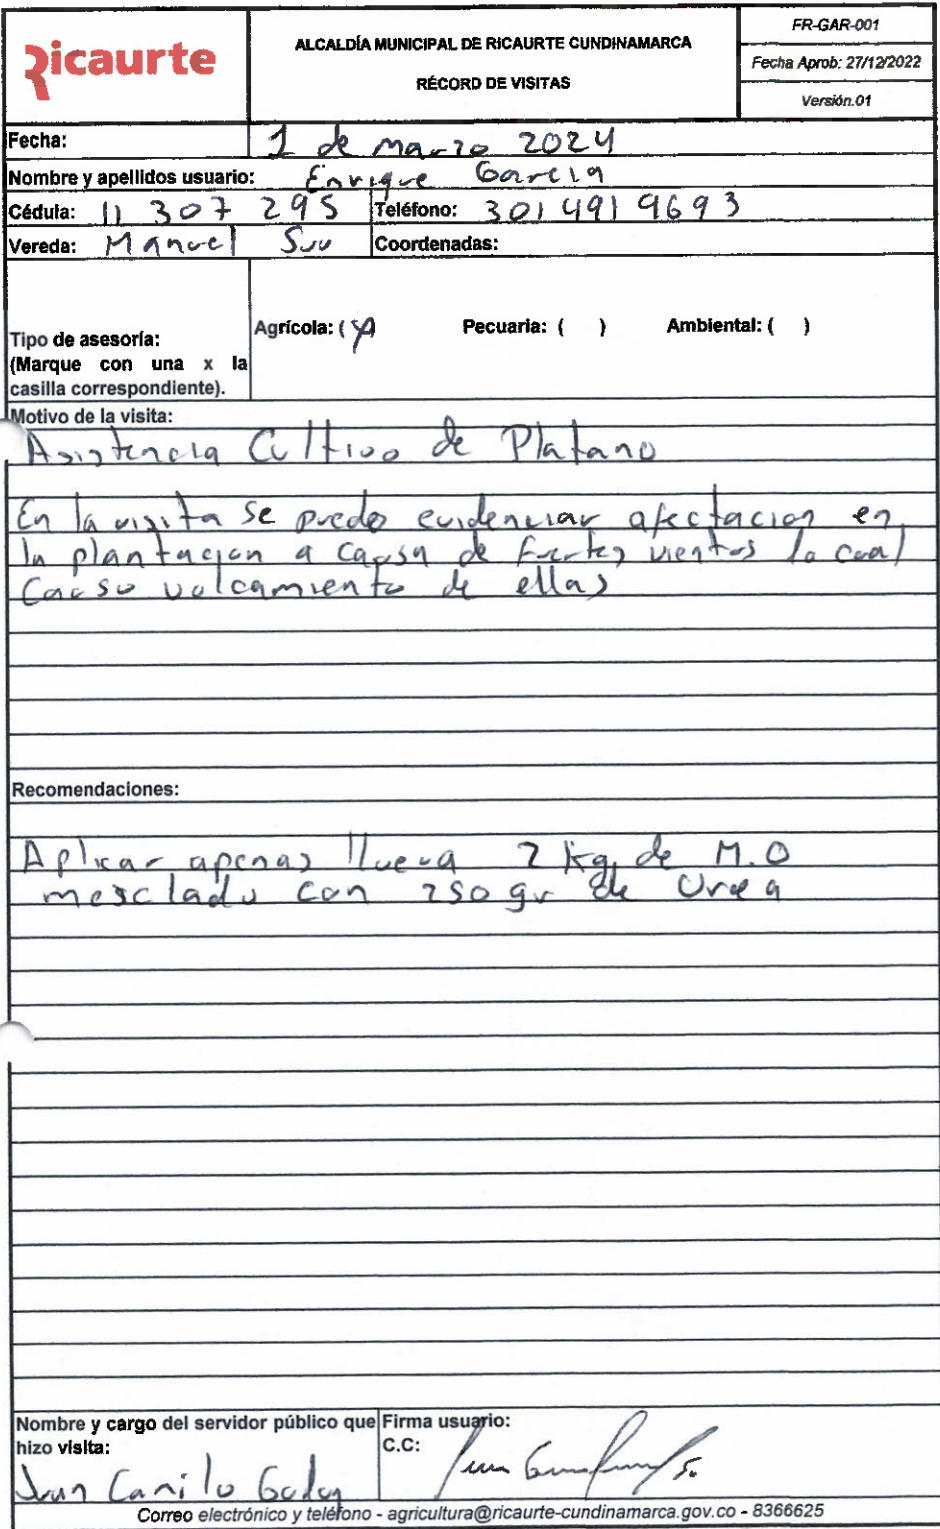 Ricaurte
ALCALDÍA MUNICIPAL DE RICAURTE CUNDINAMARCA
RÉCORD DE VISITAS
FR-GAR-001
Fecha Aprob: 27/12/2022
Versión.01
Fecha: 1 de marzo 2024
Nombre y apellidos usuario: Enrique Garcia
Cédula: 11 307 295 Teléfono: 301 491 9693
Vereda: Manuel Sur Coordenadas:
Tipo de asesoría:
(Marque con una x la
casilla correspondiente).
Agrícola: (X) Pecuaria: ( ) Ambiental: ( )
Motivo de la visita:
Asistencia Cultivo de Platano
En la visita se puedo evidenciar afectacion en
la plantacion a causa de fuertes vientos lo cual
Causo volcamiento de ellas
Recomendaciones:
Aplicar apenas llueva 2 kg de M.O
mesclado con 250 gr de Urea
Nombre y cargo del servidor público que
hizo visita:
Juan Camilo Godoy
Firma usuario:
C.C:
Correo electrónico y teléfono - agricultura@ricaurte-cundinamarca.gov.co - 8366625